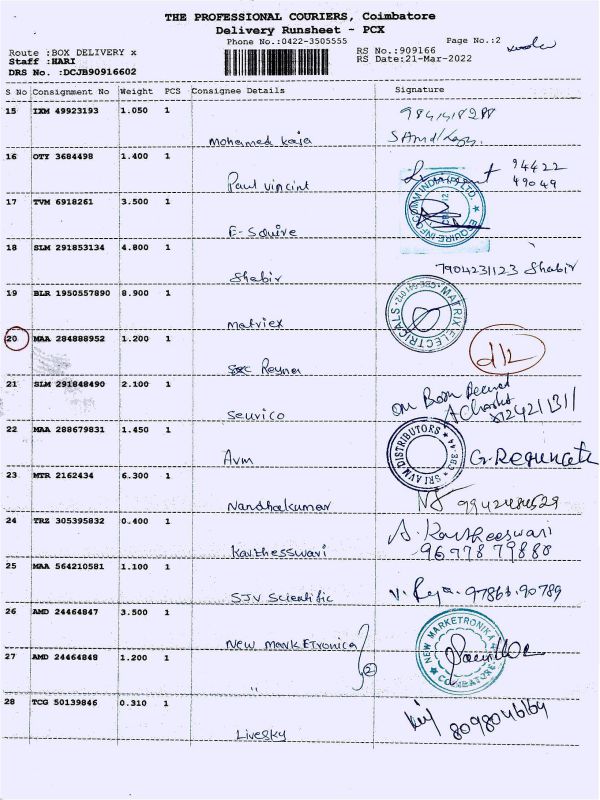 THE PROFESSIONAL COURIERS, Coimbatore
Delivery Runsheet - PCX
Phone No.:0422-3505555
Page No.:2
Route :BOX DELIVERY x
Staff :HARI
DRS No. :DCJB90916602
RS No.:909166
RS Date:21-Mar-2022
S No Consignment No Weight PCS Consignee Details Signature
15 IXM 49923193 1.050 1
Mohamed Kaja
16 OTY 3684498 1.400 1
Paul Vincint
94422
49049
17 TVM 6918261 3.500 1
E-Squire
18 SLM 291853134 4.800 1
Shabir
7904231123 Shabir
19 BLR 1950557890 8.900 1
Matriex
MATRIX ELECTRICALS
20 MAA 284888952 1.200 1
Reyna
21 SLM 291848490 2.100 1
Seurico
22 MAA 288679831 1.450 1
Avm
SRI AVM DISTRIBUTORS
23 MTR 2162434 6.300 1
Nandhakumar
24 TRZ 305395832 0.400 1
Karthesswari
A. Kartheeswari
96778 79880
25 MAA 564210581 1.100 1
SJV Scientific
97863.90789
26 AMD 24464847 3.500 1
New Marketronica
NEW MARKETRONIKA
COIMBATORE
27 AMD 24464848 1.200 1
"
2
28 TCG 50139846 0.310 1
Livesky